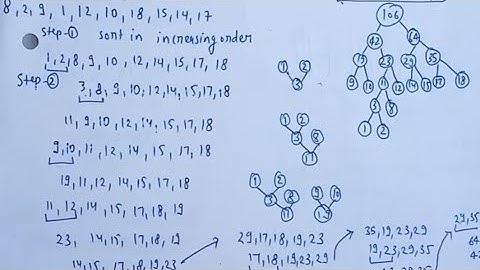 8, 2, 9, 1, 12, 10, 18, 15, 14, 17
Step-① sort in increasing order
1, 2, 8, 9, 10, 12, 14, 15, 17, 18
Step-②
3, 8, 9, 10, 12, 14, 15, 17, 18
11, 9, 10, 12, 14, 15, 17, 18
9, 10, 11, 12, 14, 15, 17, 18
19, 11, 12, 14, 15, 17, 18
11, 12, 14, 15, 17, 18, 19
23, 14, 15, 17, 18, 19
14, 15, 17, 18, 19, 23
29, 17, 18, 19, 23
17, 18, 19, 23, 29
35, 19, 23, 29
19, 23, 29, 35
29, 35
64
1 2
3
1 2
3 8
11
1 2
3 8
11
9 10
19
106
42 64
19 23 29 35
9 10 11 12 14 15 17 18
3 8
1 2